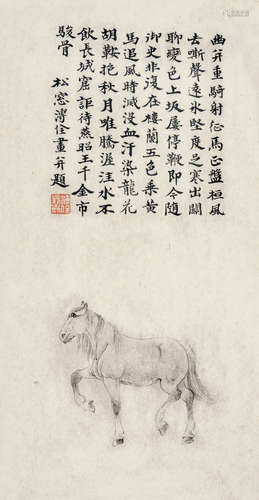 幽并重騎射征馬正盤桓風
去嘶聲遠冰堅度之寒出關
聊變色上坂屢停鞭即今隨
御史非復在樓蘭五色乘黃
馬追風時滅沒血汗染龍花
胡鞍抱秋月唯騰渥洼水不
飲長城窟詎待燕昭王千金市
駿骨
松窓溥佺畫并題